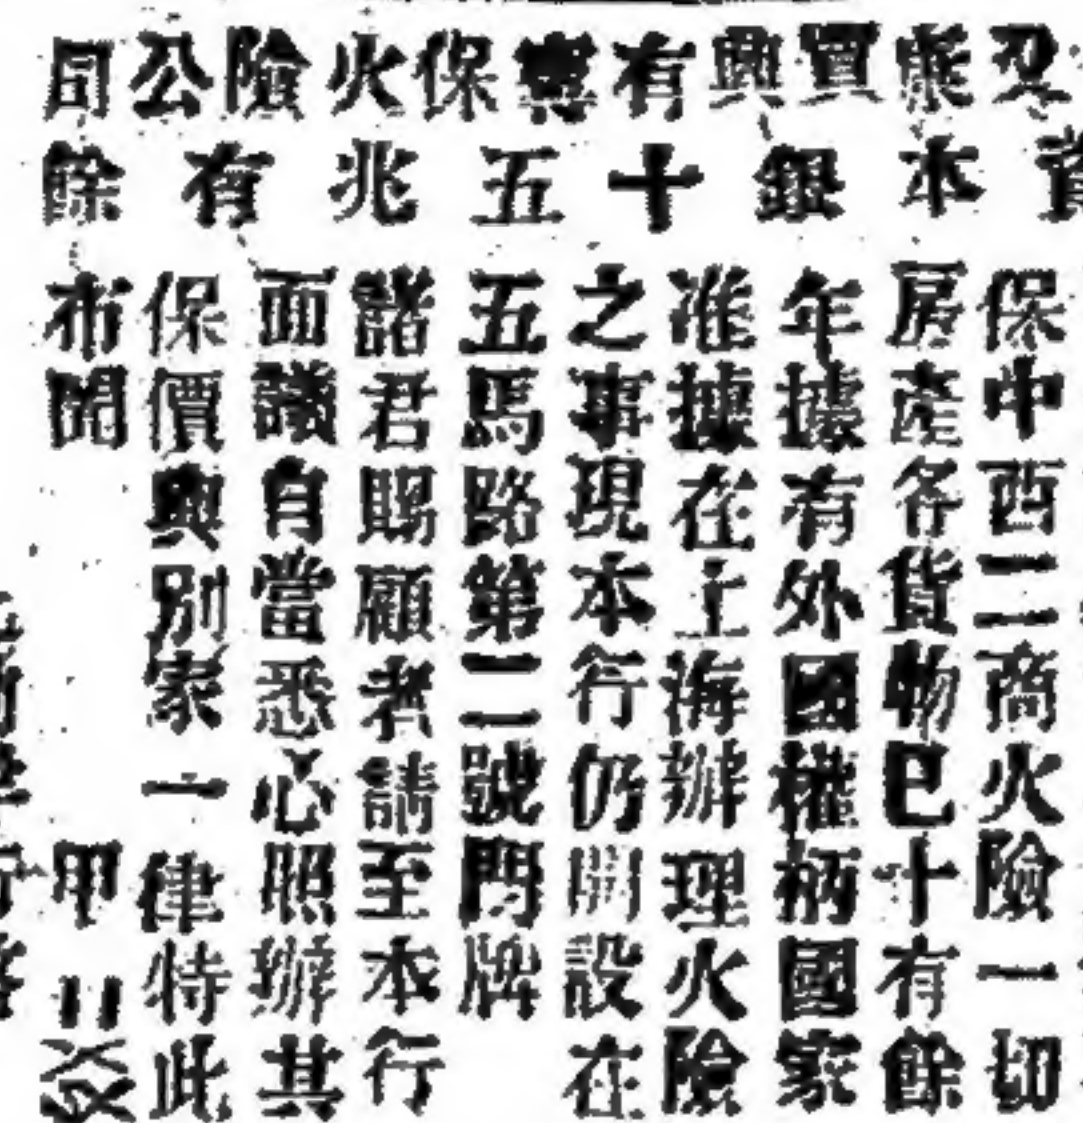 忍熊買興有專保火險公司
資本銀十五兆有餘
保中西二商火險一切
房產各貨物已十有餘
年據有外國權柄國家
准據在上海辦理火險
之事現本行仍開設在
五馬路第二號門牌
諸君賜顧者請至本行
面議自當悉心照辦其
保價與別家一律特此
布聞 甲〢